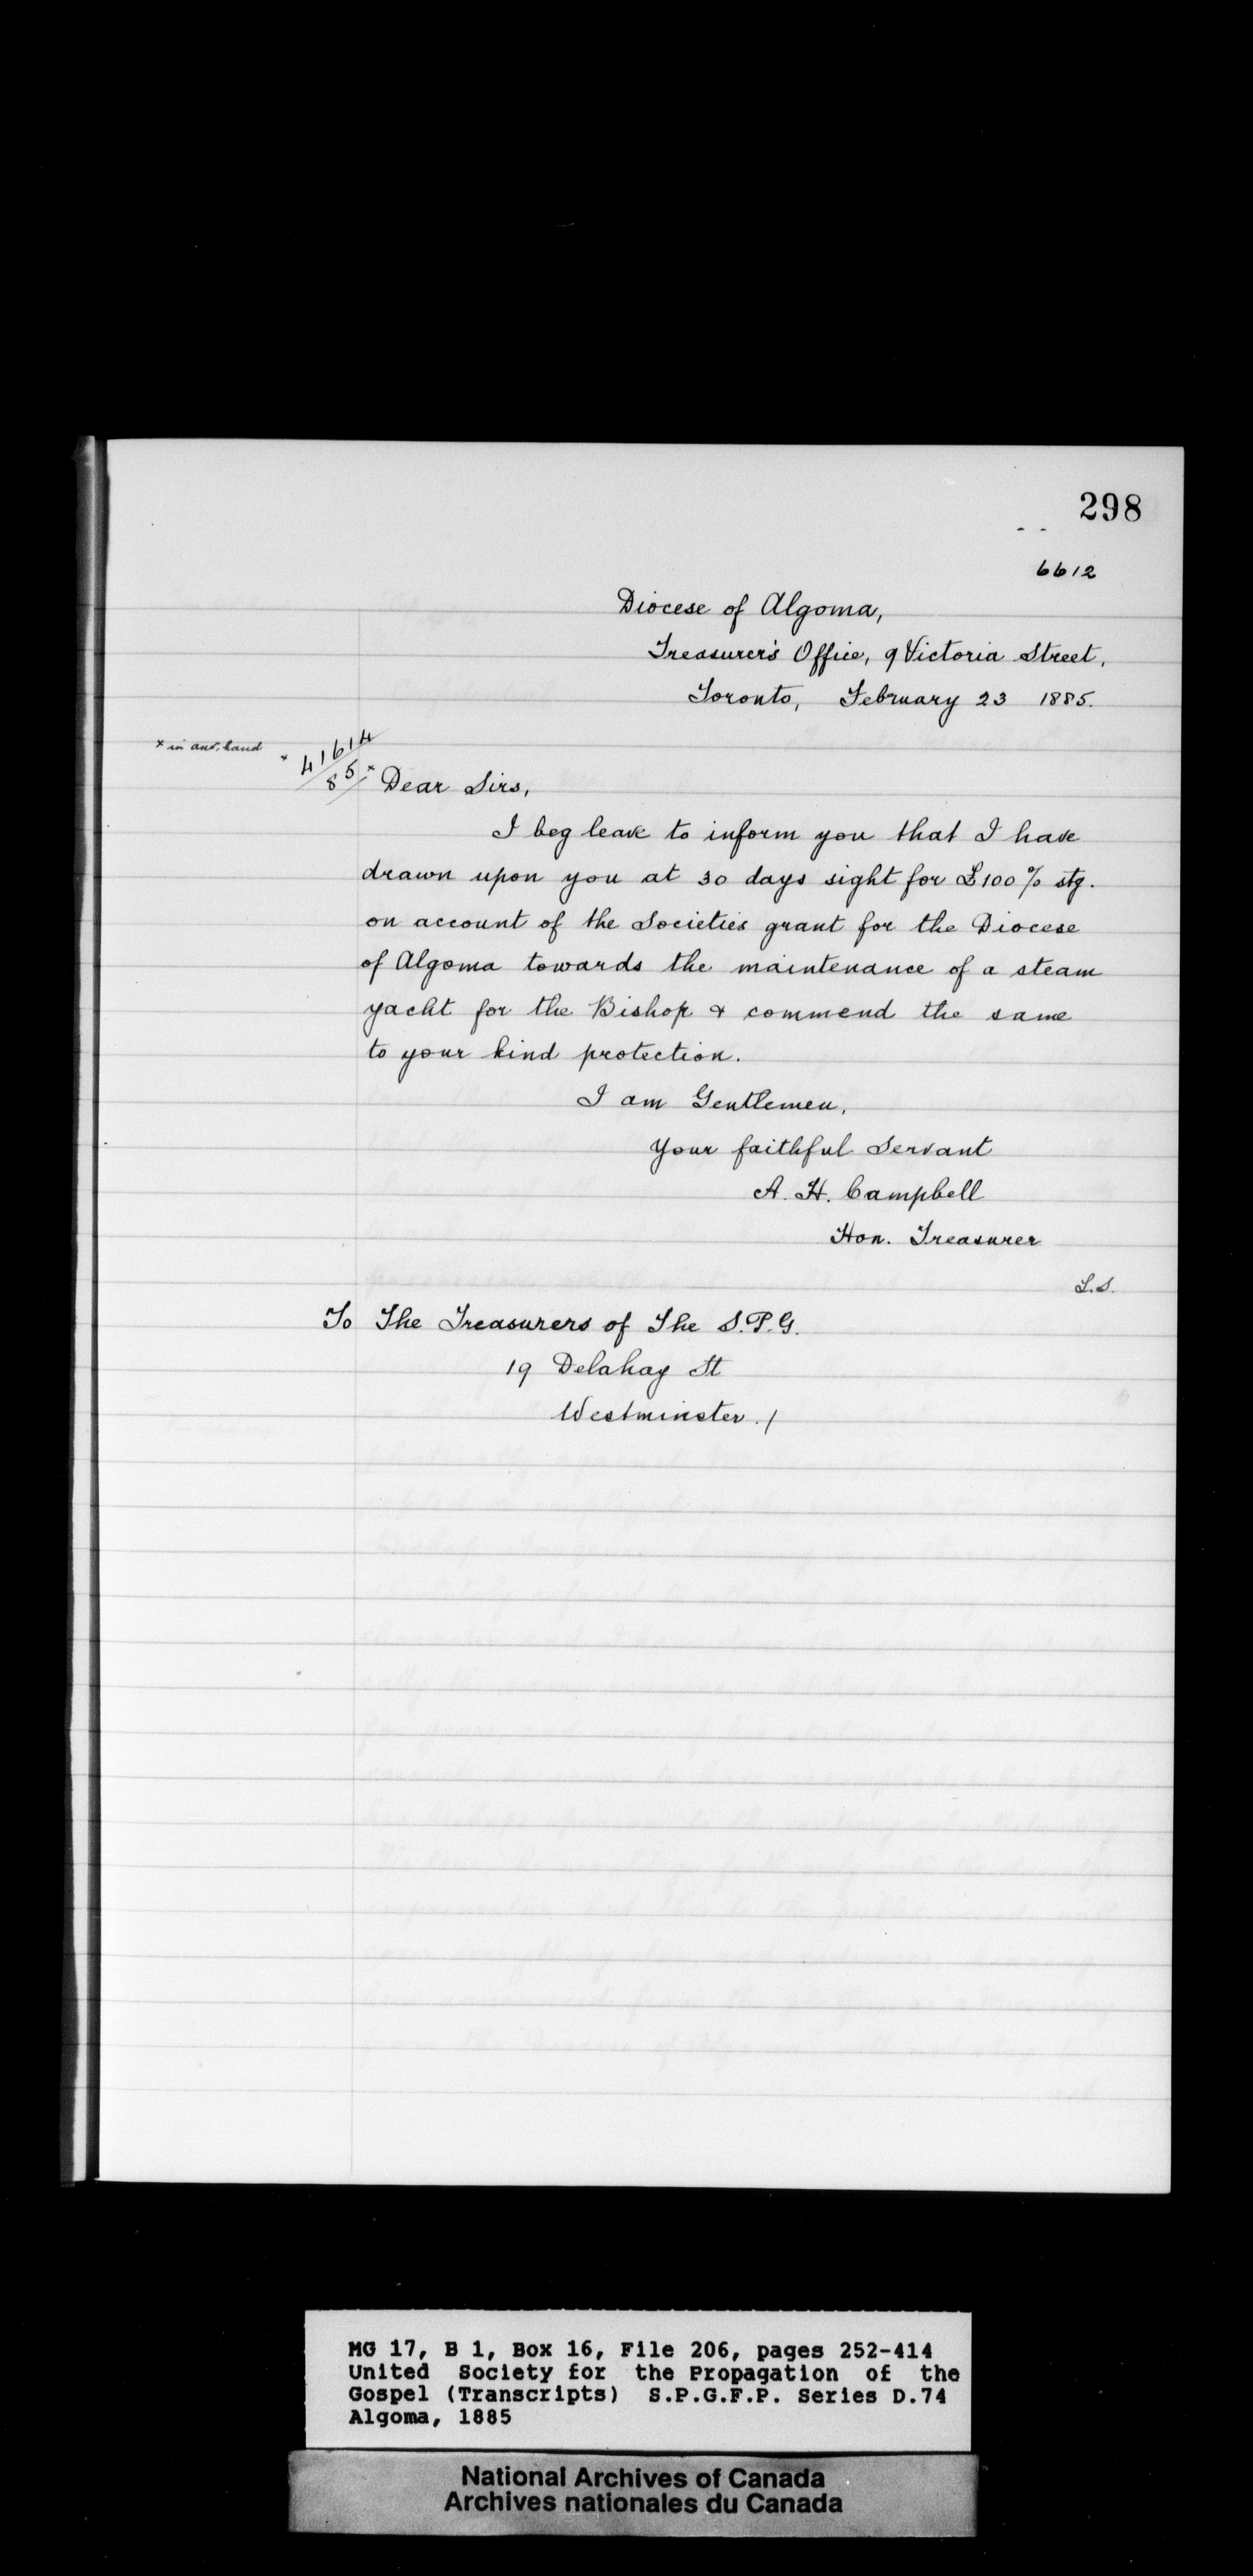 298
6612
Diocese of Algoma,
Treasurer's Office, 9 Victoria Street,
Toronto, February 23 1885.
x in ano. hand
x 41614
85 x
Dear Sirs,
I beg leave to inform you that I have
drawn upon you at 30 days sight for £100 % stg.
on account of the Societies grant for the Diocese
of Algoma towards the maintenance of a steam
yacht for the Bishop & commend the same
to your kind protection.
I am Gentlemen,
Your faithful Servant
A. H. Campbell
Hon. Treasurer
L.S.
To The Treasurers of The S.P.G.
19 Delahay St
Westminster./
MG 17, B 1, Box 16, File 206, pages 252-414
United Society for the Propagation of the
Gospel (Transcripts) S.P.G.F.P. Series D.74
Algoma, 1885
National Archives of Canada
Archives nationales du Canada